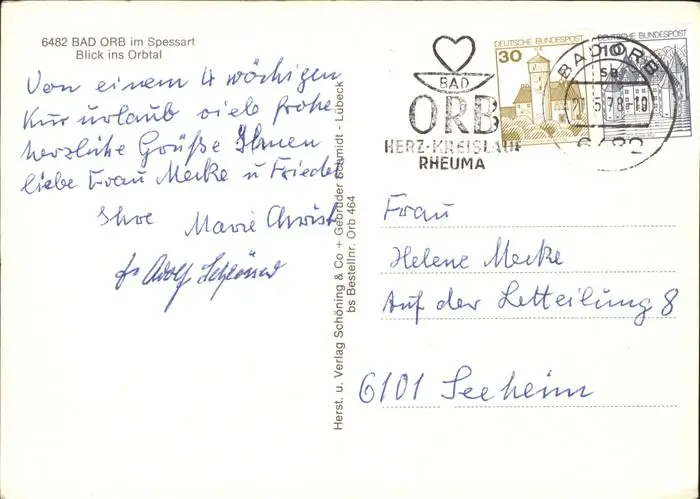 6482 BAD ORB im Spessart
Blick ins Orbtal
Von einem 4 wöchigen
Kururlaub viele frohe
herzliche Grüße Ihnen
liebe Frau Merke u Frieda
Ihre Marie Christ
Adolf
Herst. u. Verlag Schöning & Co + Gebrüder Schmidt - Lübeck
bs Bestellnr. Orb 464
BAD
ORB
HERZ-KREISLAUF
RHEUMA
DEUTSCHE BUNDESPOST
30
DEUTSCHE BUNDESPOST
10
BAD ORB
sa
21.5.78-10
6482
Frau
Helene Merke
Auf der Letteilung 8
6101 Seeheim